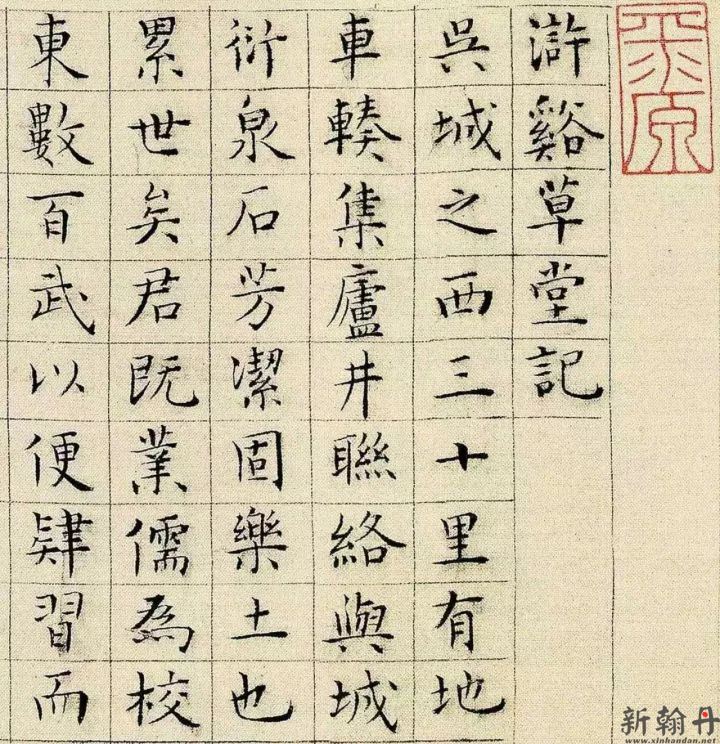 滸谿草堂記
吳城之西三十里有地
車輳集廬井聯絡與城
衍泉石芳潔固樂土也
累世矣君既業儒為校
東數百武以便肄習而
平原
新翰丹
www.xinhandan.net